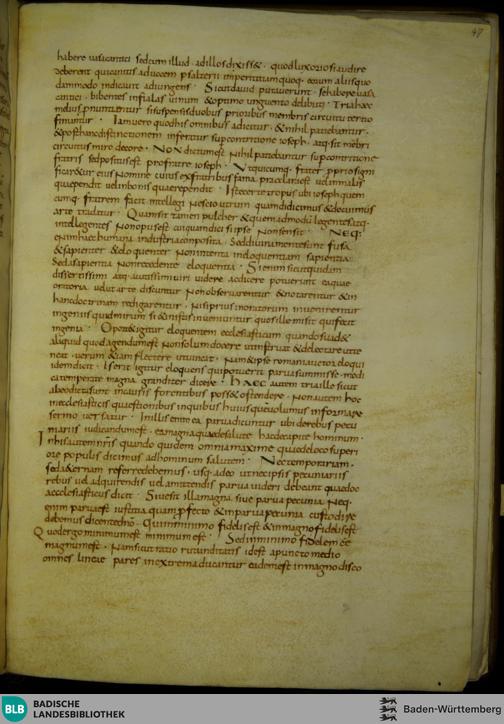 47
habere uasa cantici sed cum illud ad illos dixisset quod luxoriosi audire
deberent qui canitis ad uocem psalterii imperitiam quoque eorum aliis quo
dammodo indicauit adiungens Sicut dauid putauerunt se habere uasa
cantici bibentes in fialas uinum & optimo unguento delibuti Tria haec
suspensis duobus prioribus membris circuitu tertio
finiuntur Iam uero quod his omnibus adicitur & nihil patiebantur
circuitus miro decore Non dictum est Nihil patiebantur sup contritione
fratris sed positus est pro fratre ioseph Ut quicumq. frater proprio signi
ficaretur eius nomine cuius ex fratribus fama praeclara est uel in malis
quae pendit uel in bonis quae rependit Iste certe tropus ubi ioseph quem
cumq. fratrem facit intellegi Nescio utrum quam didicimus & docuimus
arte tradatur Quam sit tamen pulcher & quem admodum legentes atq.
intellegentes Non opus est cuiquam dici si ipse Non sentit Neq.
enim haec humana industria composita Sed diuina mente sunt fusa
& sapienter & eloquenter Non intenta in eloquentiam sapientia
Sed a sapientia Non recedente eloquentia Si enim sicut quidam
dissertissimi atq. acutissimi uiri uidere ac dicere potuerunt ea quae
oratoria uelut arte discuntur Non obseruarentur & notarentur & in
hanc doctrinam redigerentur Nisi prius in oratorum inuenirentur
ingeniis quid mirum si & in istis inueniuntur quos ille misit qui fecit
ingenia Oportet igitur eloquentem ecclesiasticum quando suadet
aliquid quod agendum est Non solum docere ut instruat & delectare ut te
neat uerum etiam flectere ut uincat Nam & ipse romani auctor eloqui
idem dicit Is erit igitur eloquens qui poterit parua summisse modi
ca temperate magna granditer dicere Haec autem tria ille sicut
ab eo dicta sunt in causis forensibus posset ostendere Non autem hoc
in ecclesiasticis quaestionibus in quibus huiusce quem uolumus informare
sermo uersatur In illis enim ea parua dicuntur ubi de rebus pecu
niariis iudicandum est ea magna quae de salute hac de capite hominum
In his autem nostris quando quidem omnia maxime quae de loco superi
ore populis dicimus ad hominum salutem Nec temporariam
sed aeternam referre debemus usq. adeo ut nec ipsis pecuniariis
rebus uel adquirendis uel amittendis parua uideri debeant quae doc
ac ecclesiasticus dicit Siue sit illa magna siue parua pecunia Neq.
enim parua est iustitia quam profecto & in parua pecunia custodire
debemus dicente domino Qui in minimo fidelis est & in magno fidelis est
Quod ergo minimum est minimum est Sed in minimo fidelem ee
magnum est Nam sicut ratio rutunditatis id est a puncto medio
omnes lineae pares in extrema ducantur eadem est in magno disco
BLB
BADISCHE
LANDESBIBLIOTHEK
Baden-Württemberg